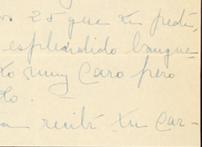 25 que tu pedi,
esplendido banque-
to muy caro pero
lo.
recibí tu car-